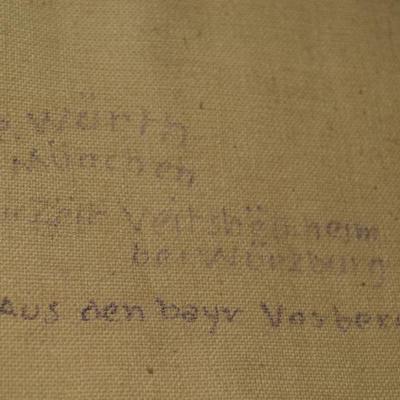 Würth
München
Zeit Veitshöchheim
bei Würzburg
Aus den bayr Vorber